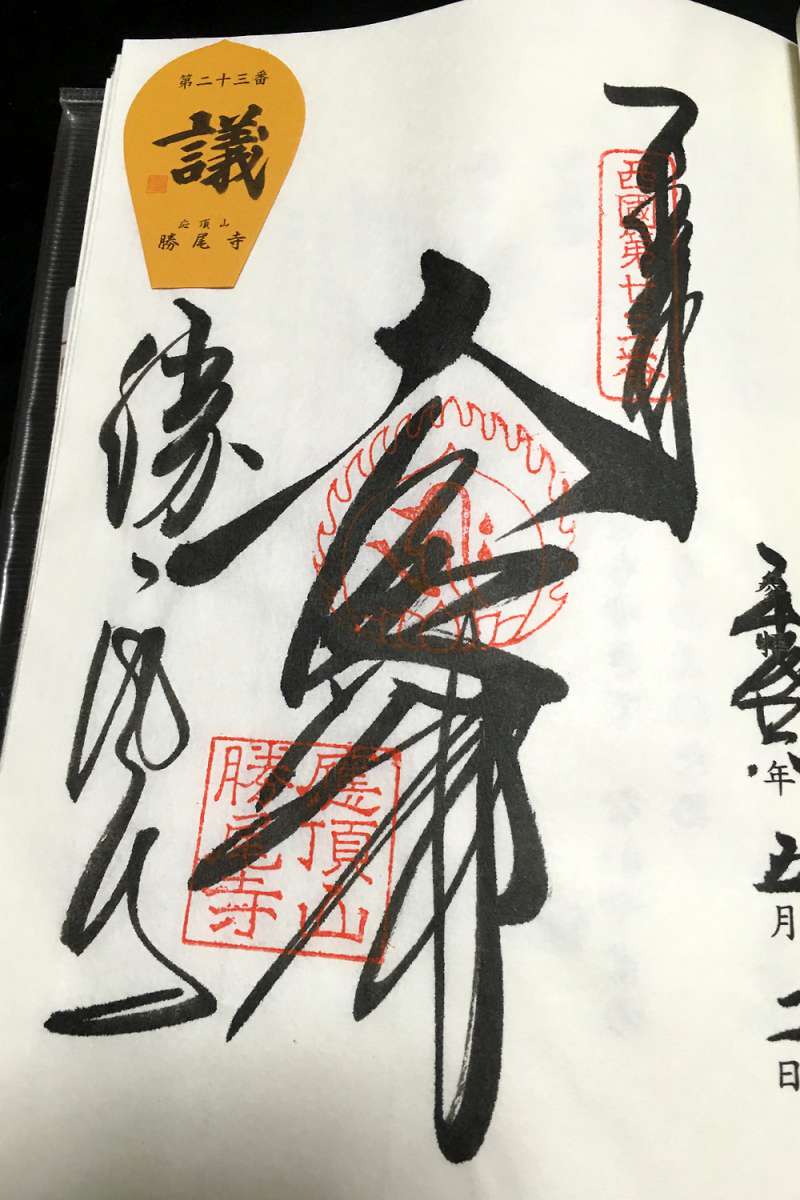 年五月二日
奉拝
西國第廿三番
大悲殿
應頂山
勝尾寺
勝尾寺
第二十三番
議
応頂山
勝尾寺